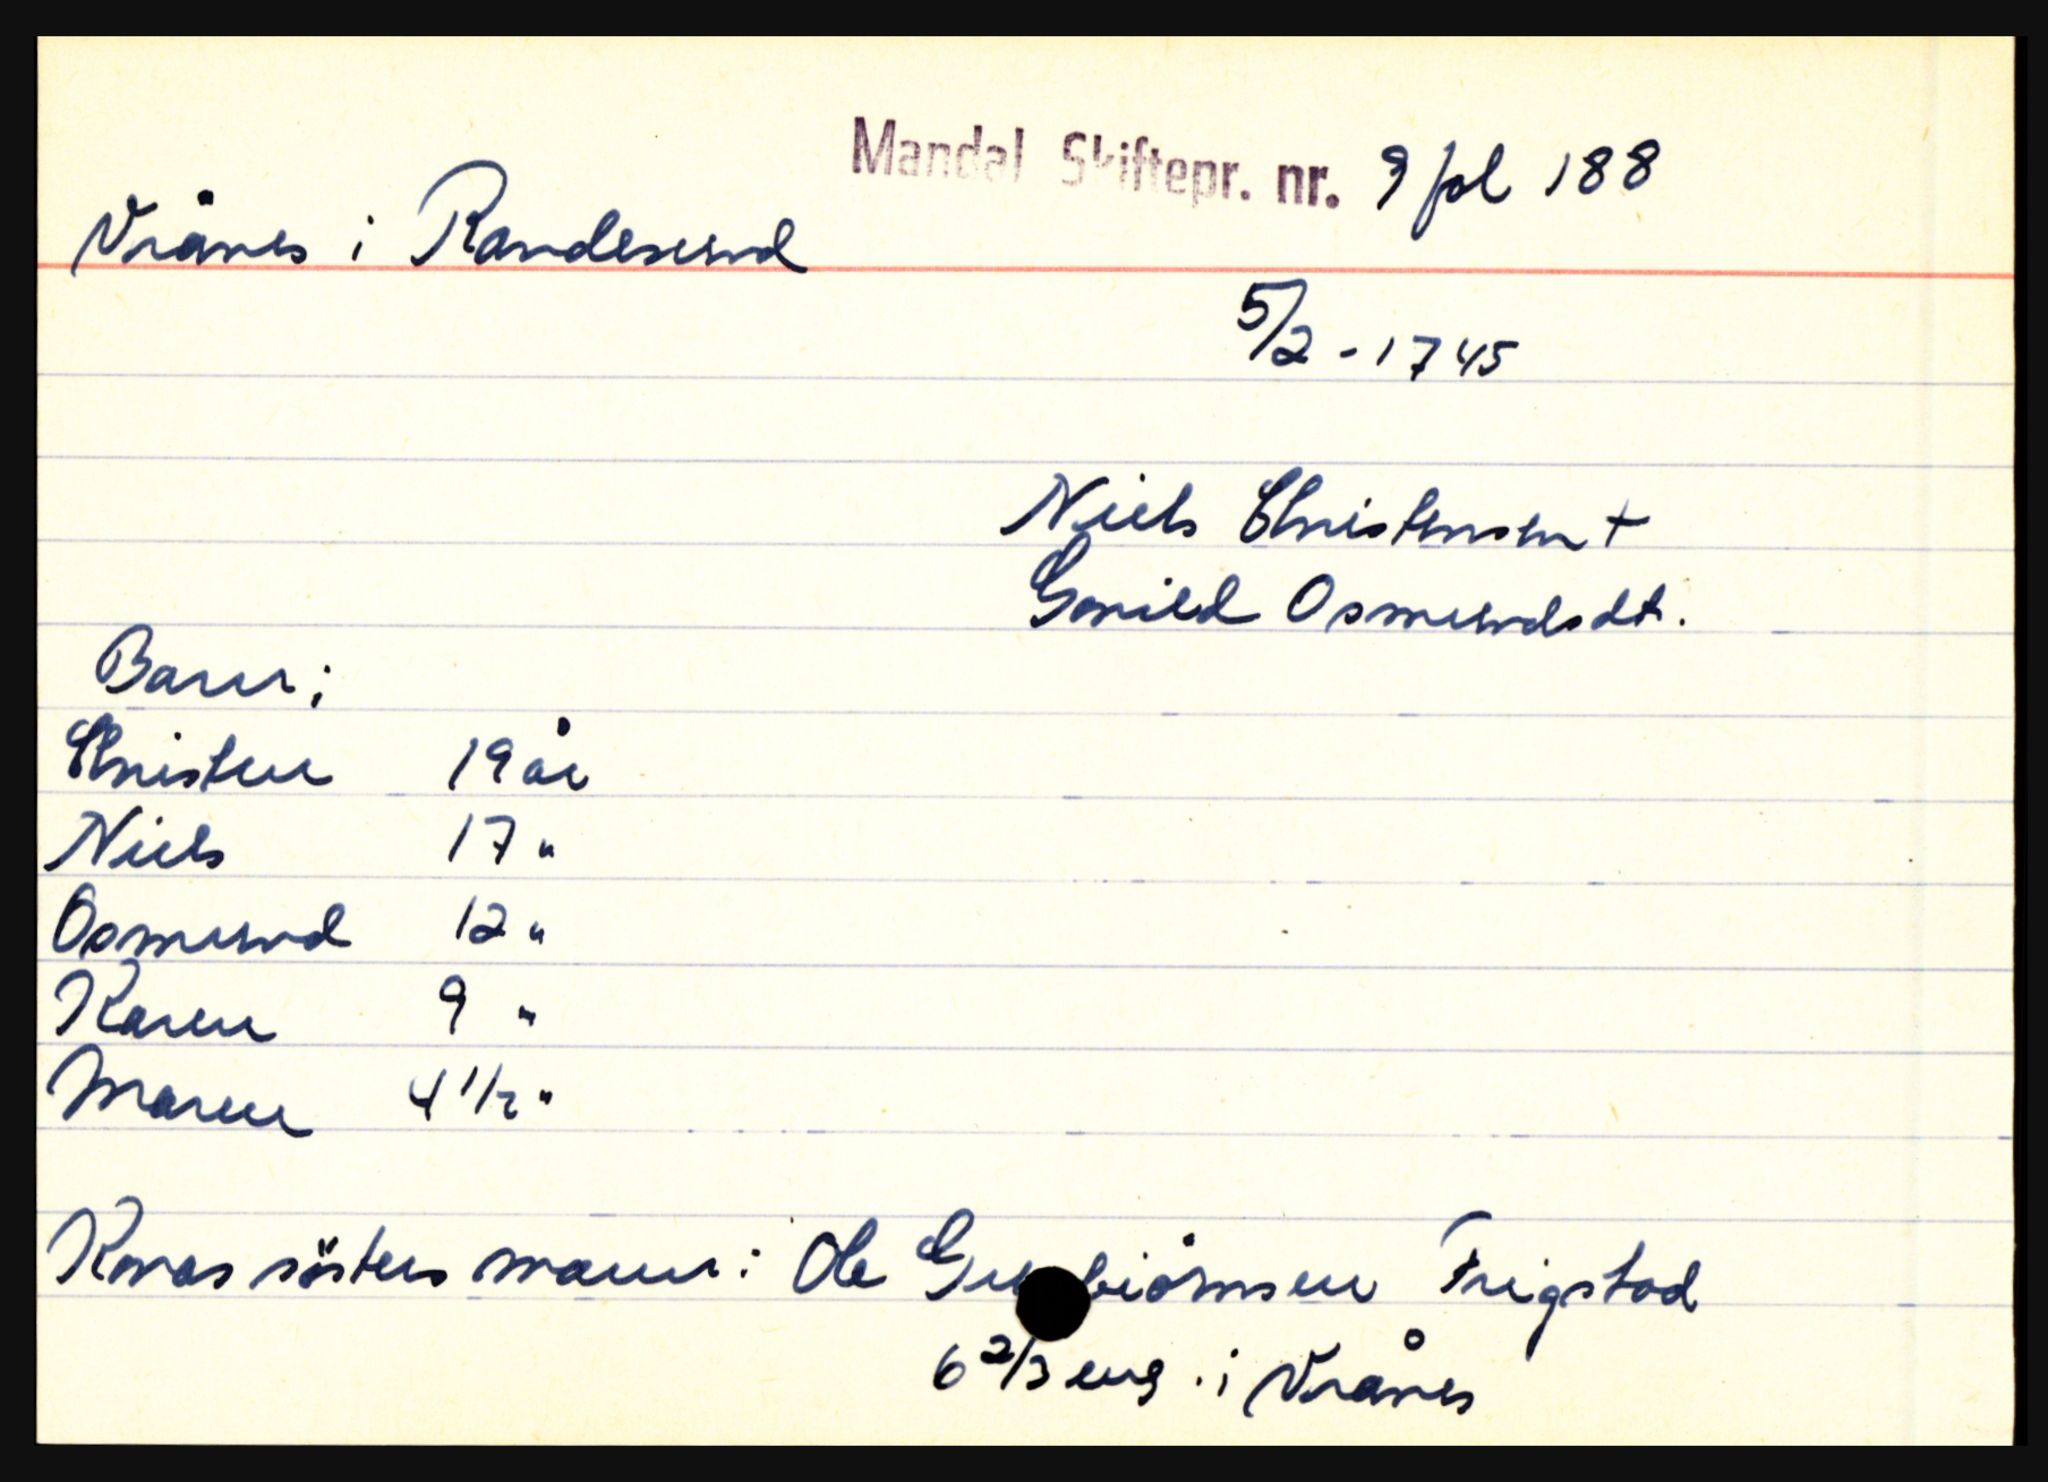 Mandal Skiftepr. nr. 9 fol 188
Vrånes i Randesund
5/2 - 1745
Niels Christensen +
Gonild Osmundsdt.
Barn:
Christen 19 år
Niels 17 "
Osmund 12 "
Karen 9 "
Maren 4 1/2 "
Konas søsters mann: Ole Frigstad
6 2/3 eng. i Vrånes